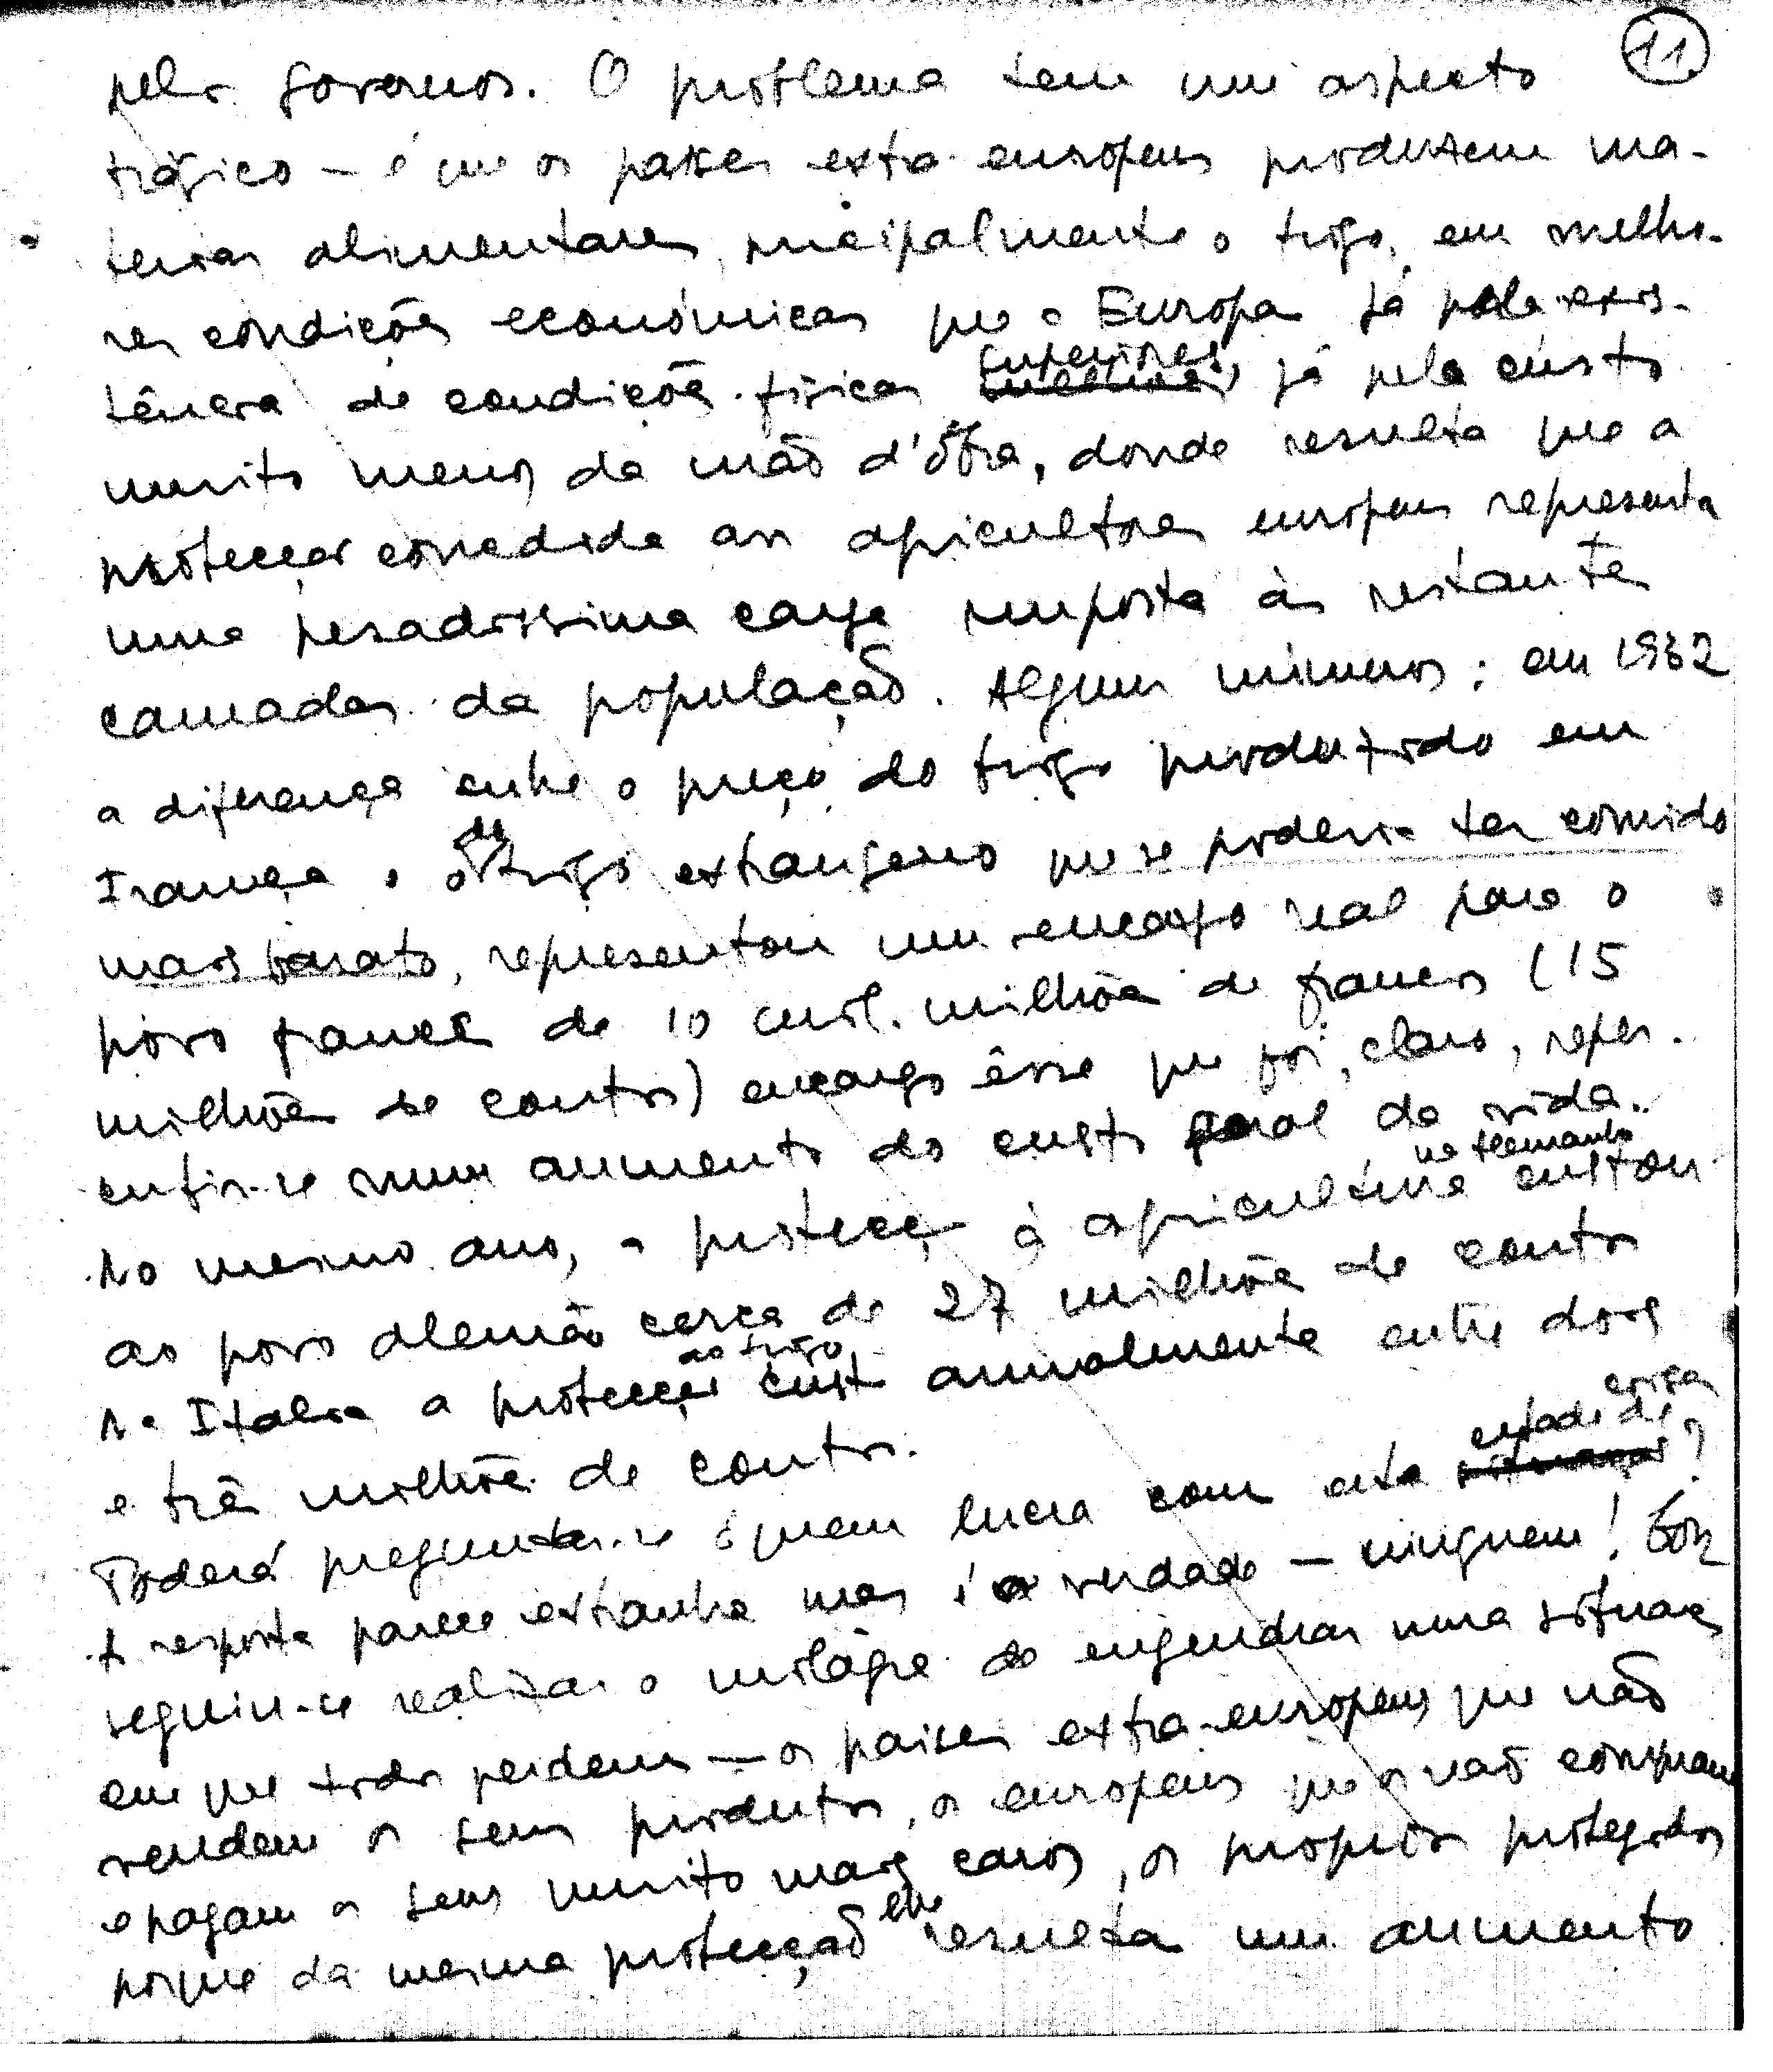 11
pelos governos. O problema tem um aspecto
trágico – é que os países extra-europeus produzem ma-
terias alimentares, principalmente o trigo, em melho-
res condições económicas que a Europa já pela exis-
tência de condições físicas superiores, já pelo custo
muito menor da mão d'obra, donde resulta que a
protecção concedida aos agricultores europeus representa
uma pesadissima carga imposta às restantes
camadas da população. Alguns números: em 1932
a diferença entre o preço do trigo produzido em
França e o do trigo extrangeiro que se poderia ter comido
mais barato, representou um encargo real para o
povo francês de 10 mil milhões de francos (15
milhões de contos) encargo êsse que foi, claro, reper-
cutir-se num aumento do custo geral da vida.
No mesmo ano, a protecção à agricultura na Alemanha custou
ao povo alemão cerca de 27 milhões de contos
Na Italia a protecção ao trigo custa anualmente entre dois
e três milhões de contos.
Poderá preguntar-se ¿quem lucra com este estado de coisas?
A resposta parece extranha mas é a verdade – ninguem! Con
seguiu-se realizar o milagre de engendrar uma situação
em que todos perdem – os países extra-europeus que não
vendem os seus produtos, os europeus que os não compram
e pagam os seus muito mais caros, os proprios protegidos
porque da mesma protecção lhe resulta um aumento